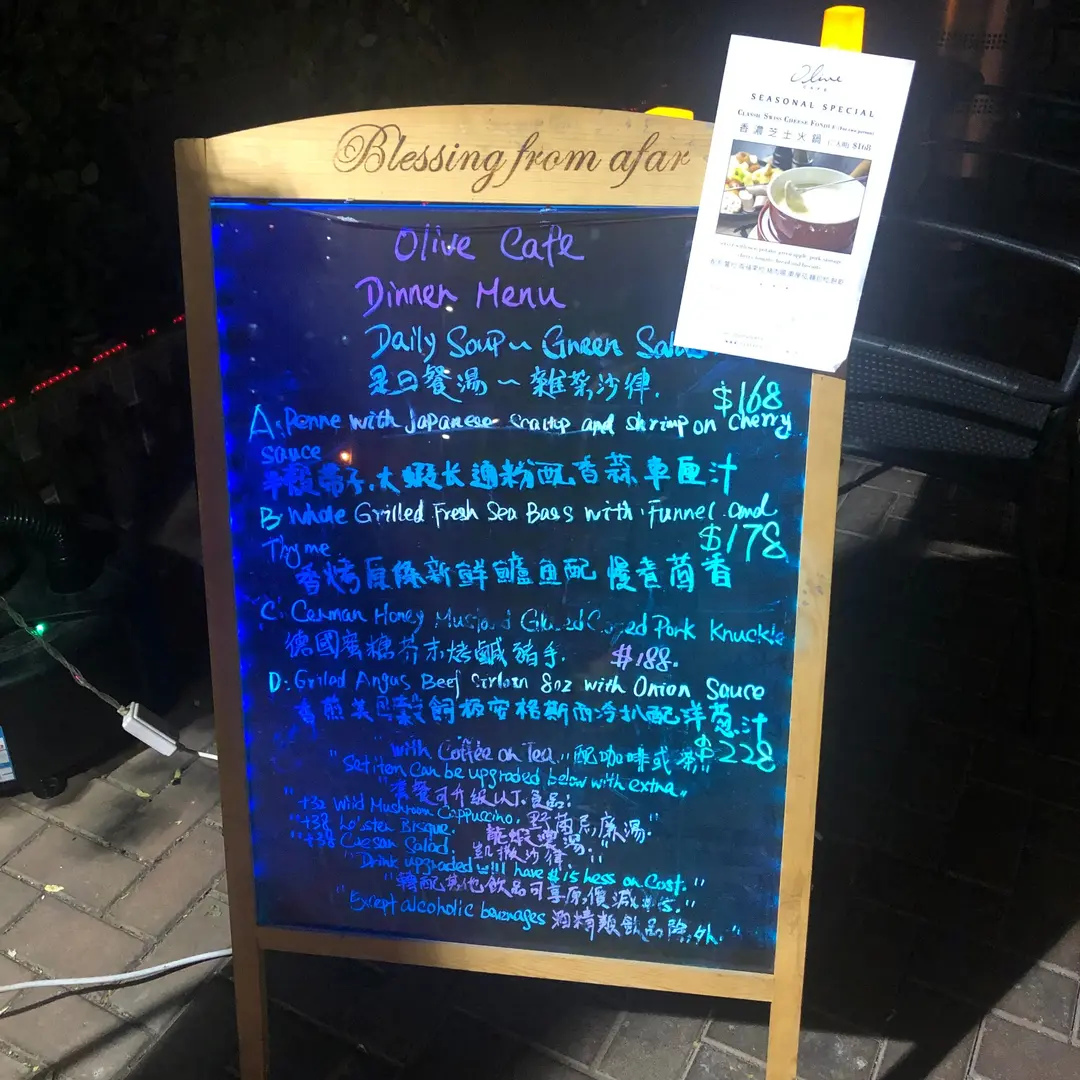 Blessing from afar
Olive
CAFE
SEASONAL SPECIAL
CLASSIC SWISS CHEESE FONDUE (For two persons)
香濃芝士火鍋 (二人用) $168
Olive Cafe
Dinner Menu
Daily Soup ~ Green Salad
是日餐湯 ~ 雜菜沙律.
$168
A: Penne with Japanese Scallop and shrimp on cherry
sauce
半殼帶子.大蝦长通粉配香蒜車厘汁
B: Whole Grilled Fresh Sea Bass with Funnel and
$178
Thyme
香烤原條新鮮鱸魚配 慢煮茴香
C: German Honey Mustard Glazed Pork Knuckle
德國蜜糖芥末烤鹹豬手. $188.
D: Grilled Angus Beef Sirloin 8oz with Onion Sauce
香煎美國穀飼極安格斯西冷扒配洋葱汁
$228
"with Coffee or Tea" "配咖啡或茶"
"Set item can be upgraded below with extra"
"套餐可升级以下食品:
"+32 Wild Mushroom Cappuccino. 野菌忌廉湯."
"+38 Lobster Bisque. 龍蝦濃湯."
"+38 Caesar Salad. 凱撒沙律."
"Drink upgraded will have $15 less on Cost."
"轉配其他飲品可享原價減$15."
"Except alcoholic beverages 酒精類飲品除外."